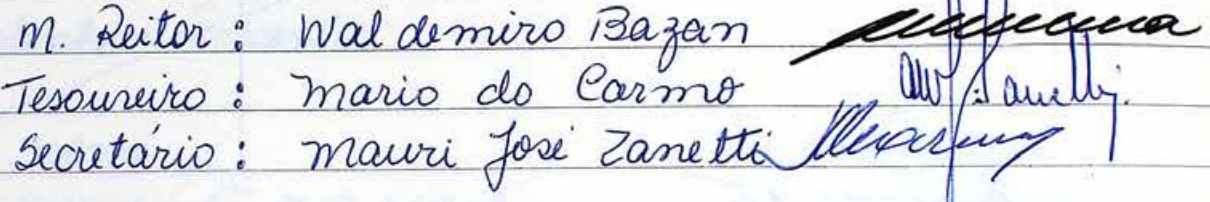 M. Reitor : Waldemiro Bazan
Tesoureiro : Mario do Carmo
Secretário : Mauri José Zanetti